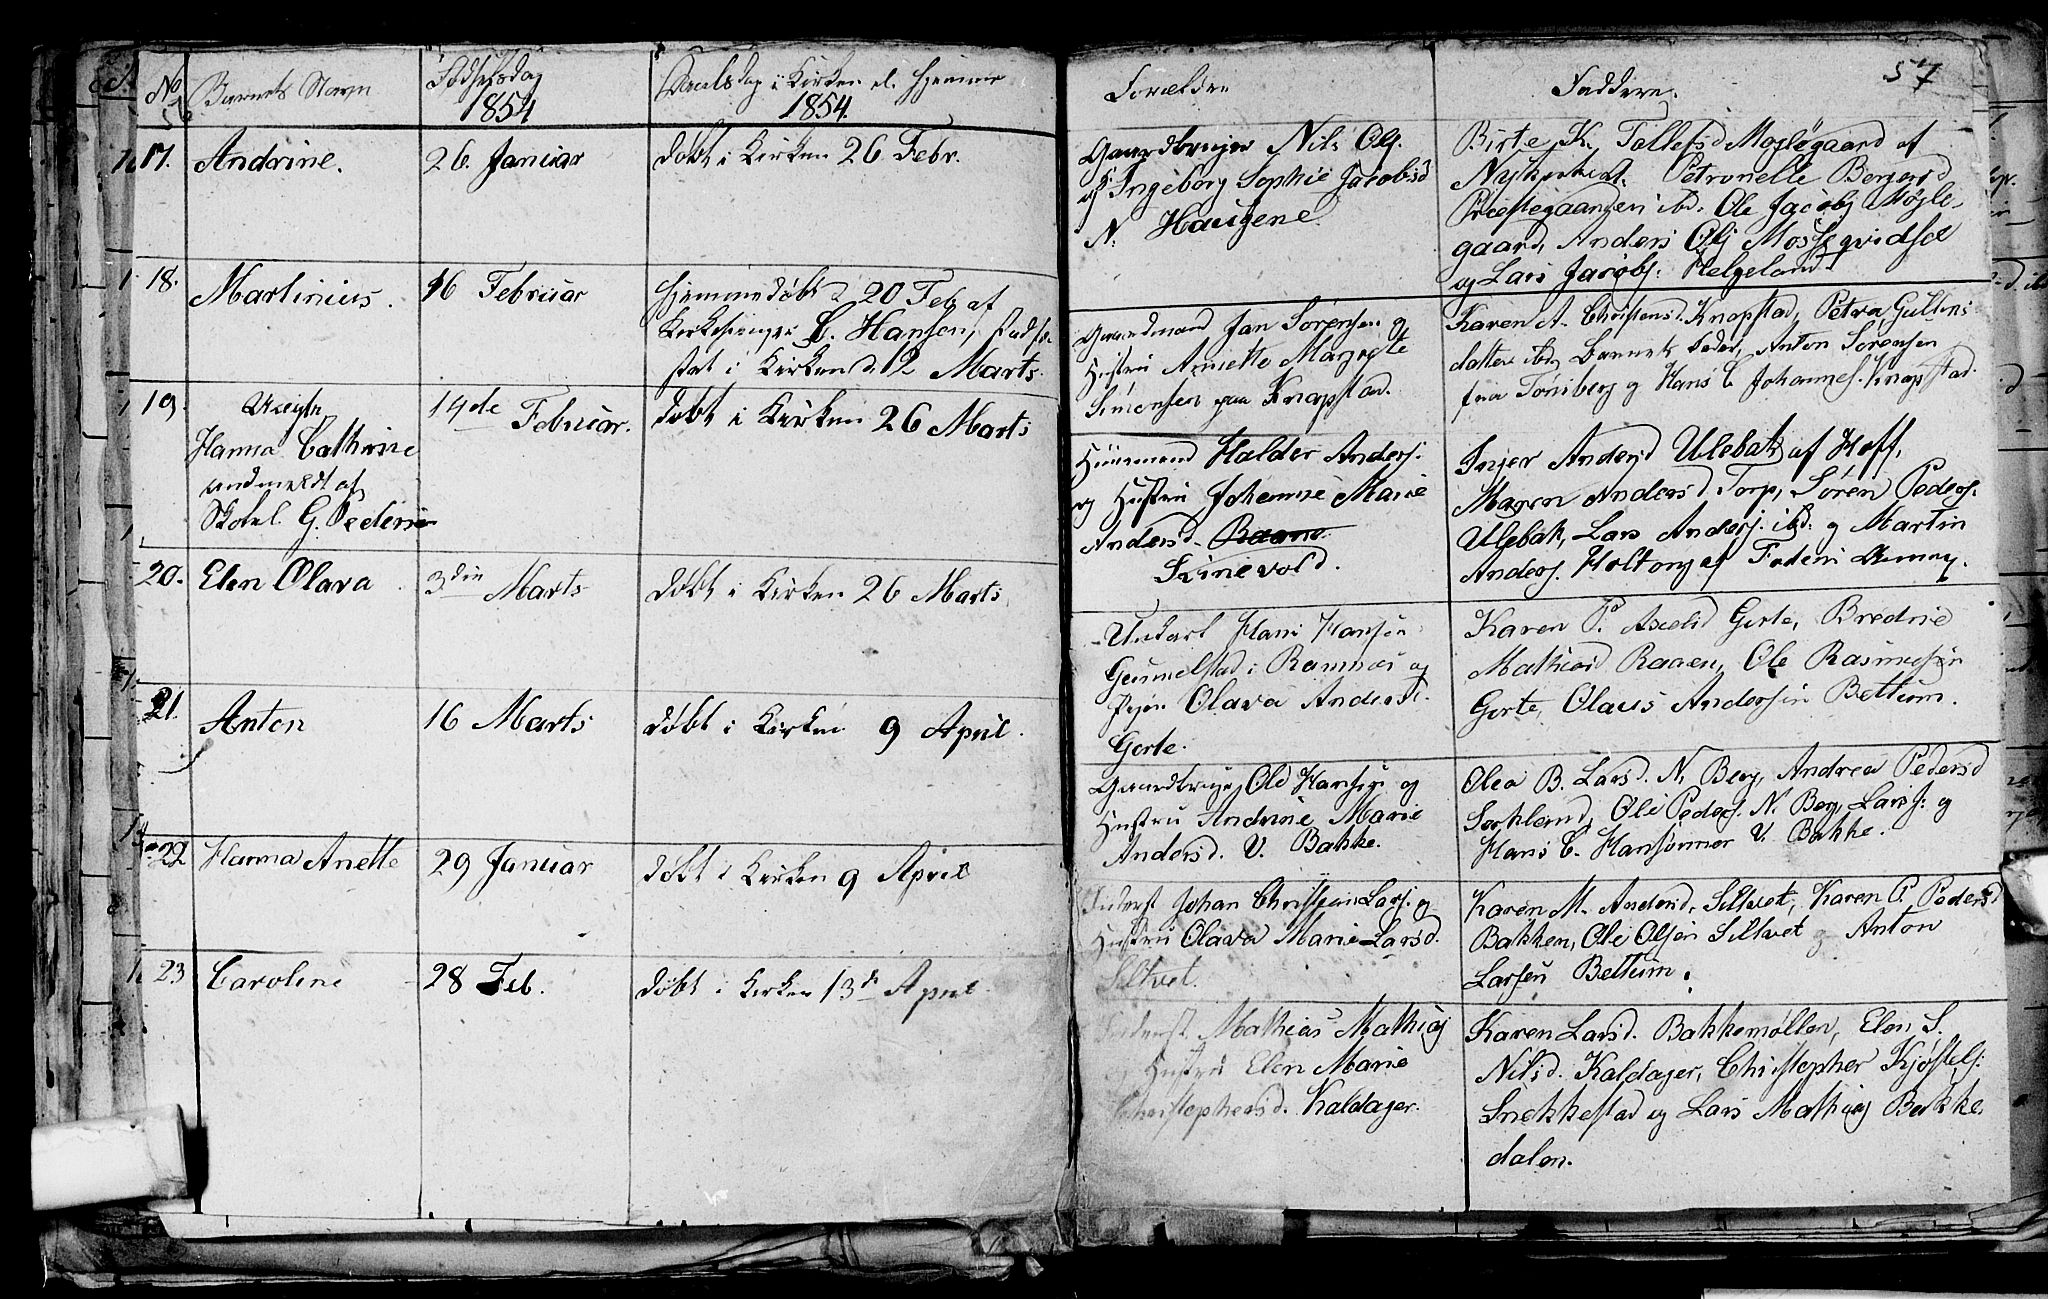 No
Barnets Navn
Fødselsdag
1854
Daabsdag i Kirken el. Hjemme
1854.
17.
Andrine.
26. Januar
døbt i Kirken 26 Febr.
18.
Martinius.
16 Februar
Hjemmedøbt d. 20 Feb af
Kirkesanger C. Hansen, stadfæ-
stet i Kirken d. 12 Marts.
19.
Uægte
Hanna Cathrine
andmeldt af
Skolel. G. Pedersen
14de Februar.
døbt i Kirken 26 Marts
20.
Elen Olava
3die Marts
døbt i Kirken 26 Marts
21.
Anton
16 Marts
døbt i Kirken 9 April.
22
Hanna Anette
29 Januar
døbt i Kirken 9 April
23
Caroline
28 Feb.
døbt i Kirken 13de April
57
Forældre
Faddere.
Gaardbruger Nils Ols.
og Ingeborg Sophie Jacobsd
N. Haugene
Birte K. Tollefsd Møglegaard af
Nykirket. Petronelle Bergersd
Præstegaangen ibd. Ole Jacobs Møgle-
gaard, Anders Ols
og Lars Jacobs: Helgeland
Gaardmand Jan Sørensen og
Hustru Anette Margrete
Simensen paa Knapstad.
Karen A. Christensd. Knapstad, Petra Gulbens
datter ibd, Barnets Fader, Anton Sørensen
fra Tønsberg og Hans C Johannes. Knapstad.
Huusmand Halder Anders.
og Hustru Johanne Marie
Andersd. Raane
Skinevold.
Inger Andersd Ulebak af Hoff,
Maren Andersd. Torp, Søren Peders.
Ulebak, Lars Anders. ibd. og Martin
Anders. Holtong af
Unkarl Hans Hansen
Gunnelstad i Ramnæs og
Pigen Olava Andersd.
Gerte.
Karen P. Axelsd Gerte, Bredine
Mathiasd Raaen, Ole Rasmussen
Gerte, Olaus Andersen Bettum.
Gaardbruger Ole Hansen og
Hustru Andrine Marie
Andersd. V. Bakke.
Olea B. Larsd. N. Berg, Andrea Pedersd
Sørkland, Ole Peders. N. Berg, Lars J: og
Hans C. Hansønner V. Bakke.
Inderst Johan Christian Lars. og
Hustru Olava Marie Larsd.
Siltvet.
Karen M. Andersd. Siltvet, Karen P. Pedersd
Bakken, Ole Olsen Siltvet og Anton
Larsen Bettum.
Inderst Mathias Mathias
og Hustru Elen Marie
Christophersd. Kaldager.
Karen Larsd. Bakkemøllen, Elen S.
Nilsd. Kaldager, Christopher Kjøstels:
Snekkestad og Lars Mathias Bakke
dalen.